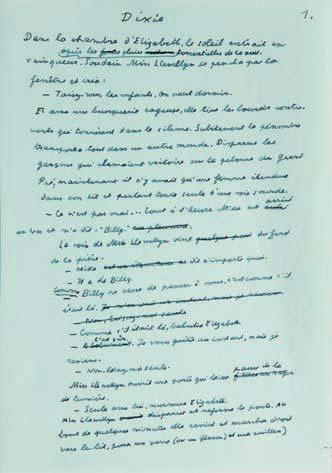 Dixie
1.
Dans la chambre d'Elizabeth, le soleil entrait en
après les pluies torrentielles de la nuit.
vainqueur. Soudain Miss Llewellyn se pencha par la
fenêtre et cria :
— Taisez-vous les enfants, on veut dormir.
Et avec une brusquerie rageuse, elle tira les lourds contre-
vents qui tournèrent dans le silence. Subitement la pénombre
transporta tout dans un autre monde. Disparus les
garçons qui clamaient victoire sur la pelouse du grand
Pré, maintenant il n'y avait qu'une femme étendue
dans son lit et parlant toute seule d'une voix sourde.
— Ce n'est pas vrai... Tout à l'heure Mike est
arrivé
en bas et m'a dit : "Billy."
La voix de Miss Llewellyn vint du fond
de la pièce.
— Mike dit n'importe quoi.
— Il a dit Billy.
Comme Billy ne cesse de penser à vous, c'est comme s'il
était là.
— Comme s'il était là, balbutia Elizabeth
Je vous quitte un instant, mais je
reviens.
— Non, laissez-moi seule.
Miss Llewellyn ouvrit une porte qui laissa
de lumière.
— Seule avec lui, murmura Elizabeth.
Miss Llewellyn disparut et referma la porte. Au
bout de quelques minutes elle revint et marcha droit
vers le lit, posa un verre (ou un flacon) et une cuiller)